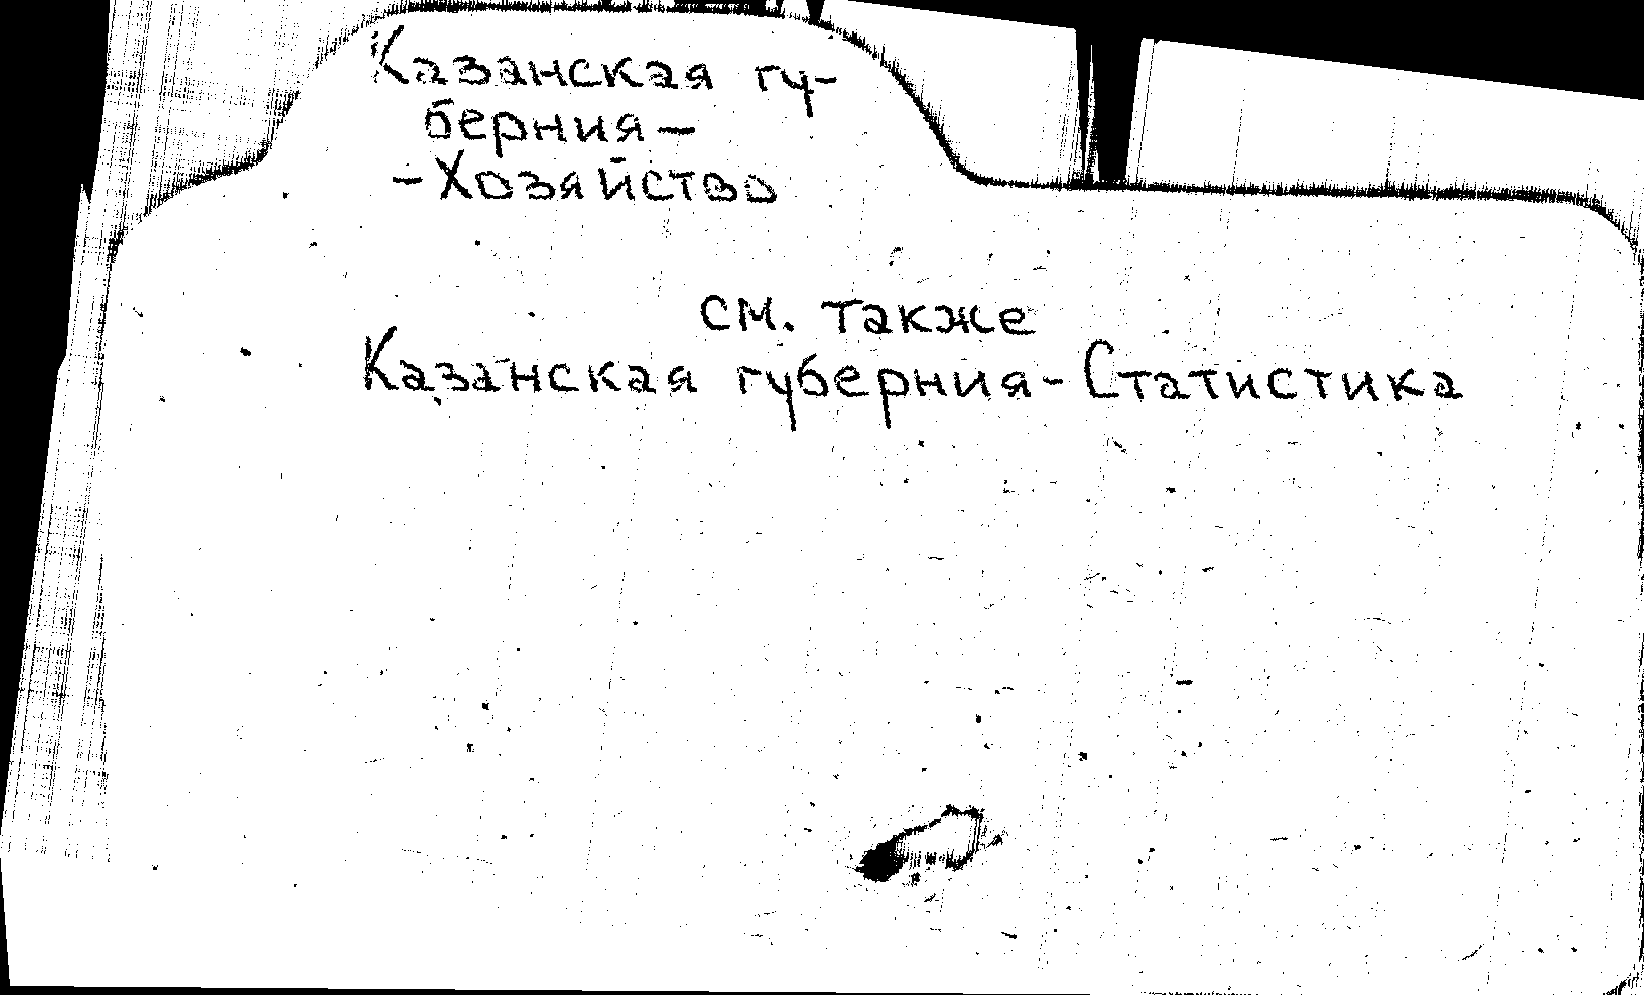 Казанская гу-
берния-
-Хозяйство
см. также
Казанская губерния-Статистика